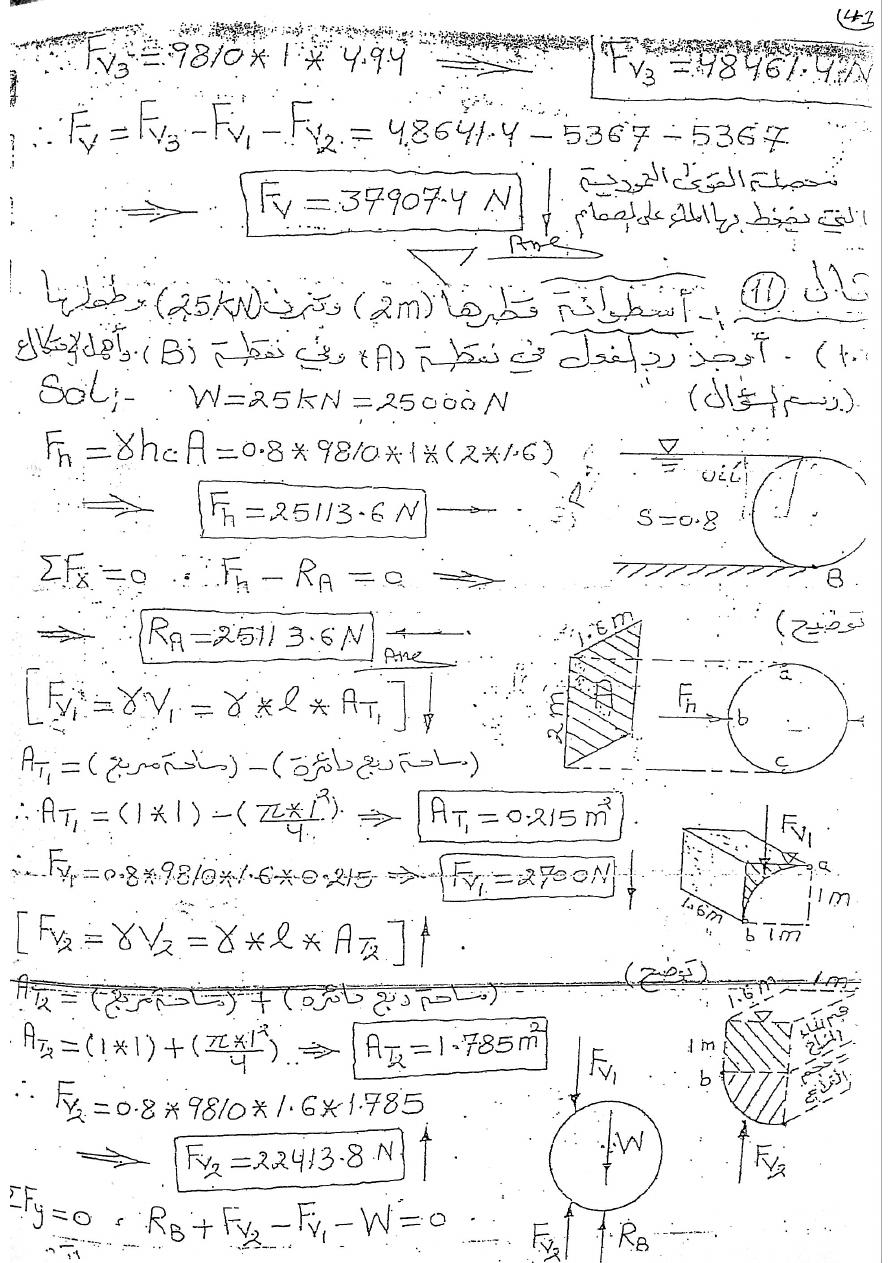 (41
∴ Fv3 = 9810 * 1 * 4.94 ⟹ Fv3 = 48461.4 N
∴ Fv = Fv3 - Fv1 - Fv2 = 48641.4 - 5367 - 5367
⟹ Fv = 37907.4 N ↓ محصلة القوى العمودية
التي يضغط بها الماء على الصمام
Ans
ثال (11) :- أسطوانة قطرها (2m) وتزن (25kN) وطولها
. أوجد رد الفعل في نقطة (A) وفي نقطة (B). وأهمل الاحتكاك
(رسم السؤال)
Sol:- W = 25kN = 25000 N
Fh = γ hc A = 0.8 * 9810 * 1 * (2 * 1.6)
oil
⟹ Fh = 25113.6 N →
S = 0.8
ΣFx = 0 ∴ Fh - RA = 0 ⟹
B
⟹ RA = 25113.6 N ←
Ans
(توضيح
1.6m
2m
A
Fh
a
b
c
[Fv1 = γV1 = γ * l * AT1] ↓
AT1 = (مساحة مربع) - (مساحة ربع دائرة)
∴ AT1 = (1*1) - (π*1²/4) ⟹ AT1 = 0.215 m²
∴ Fv1 = 0.8*9810*1.6*0.215 ⟹ Fv1 = 2700 N ↓
Fv1
a
1m
1.6m
b 1m
[Fv2 = γV2 = γ * l * AT2] ↑
(توضيح)
AT2 = (مساحة مربع) + (مساحة ربع دائرة)
AT2 = (1*1) + (π*1²/4) ⟹ AT2 = 1.785 m²
1.6m 1m
1m
b
Fv2
∴ Fv2 = 0.8 * 9810 * 1.6 * 1.785
⟹ Fv2 = 22413.8 N ↑
Fv1
W
Fv2
RB
ΣFy = 0 ∴ RB + Fv2 - Fv1 - W = 0